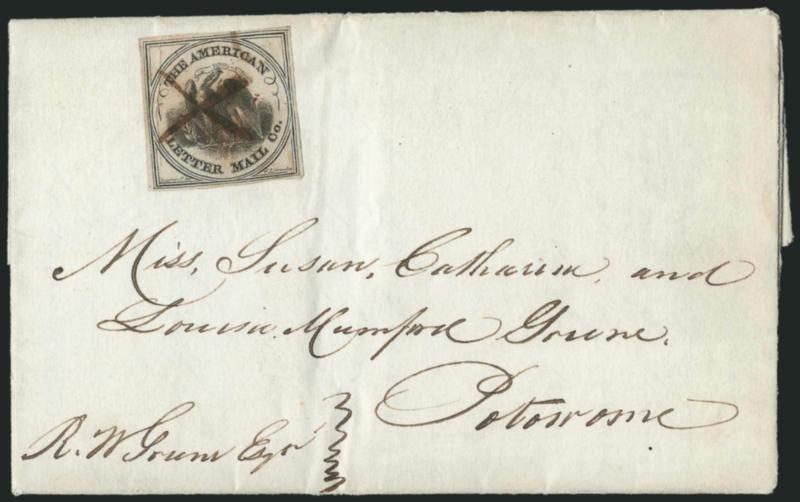 THE AMERICAN
LETTER MAIL Co.
Miss, Susan, Catharine, and
Louisa Mumford Greene.
Potowome
R. W Greene Esqr